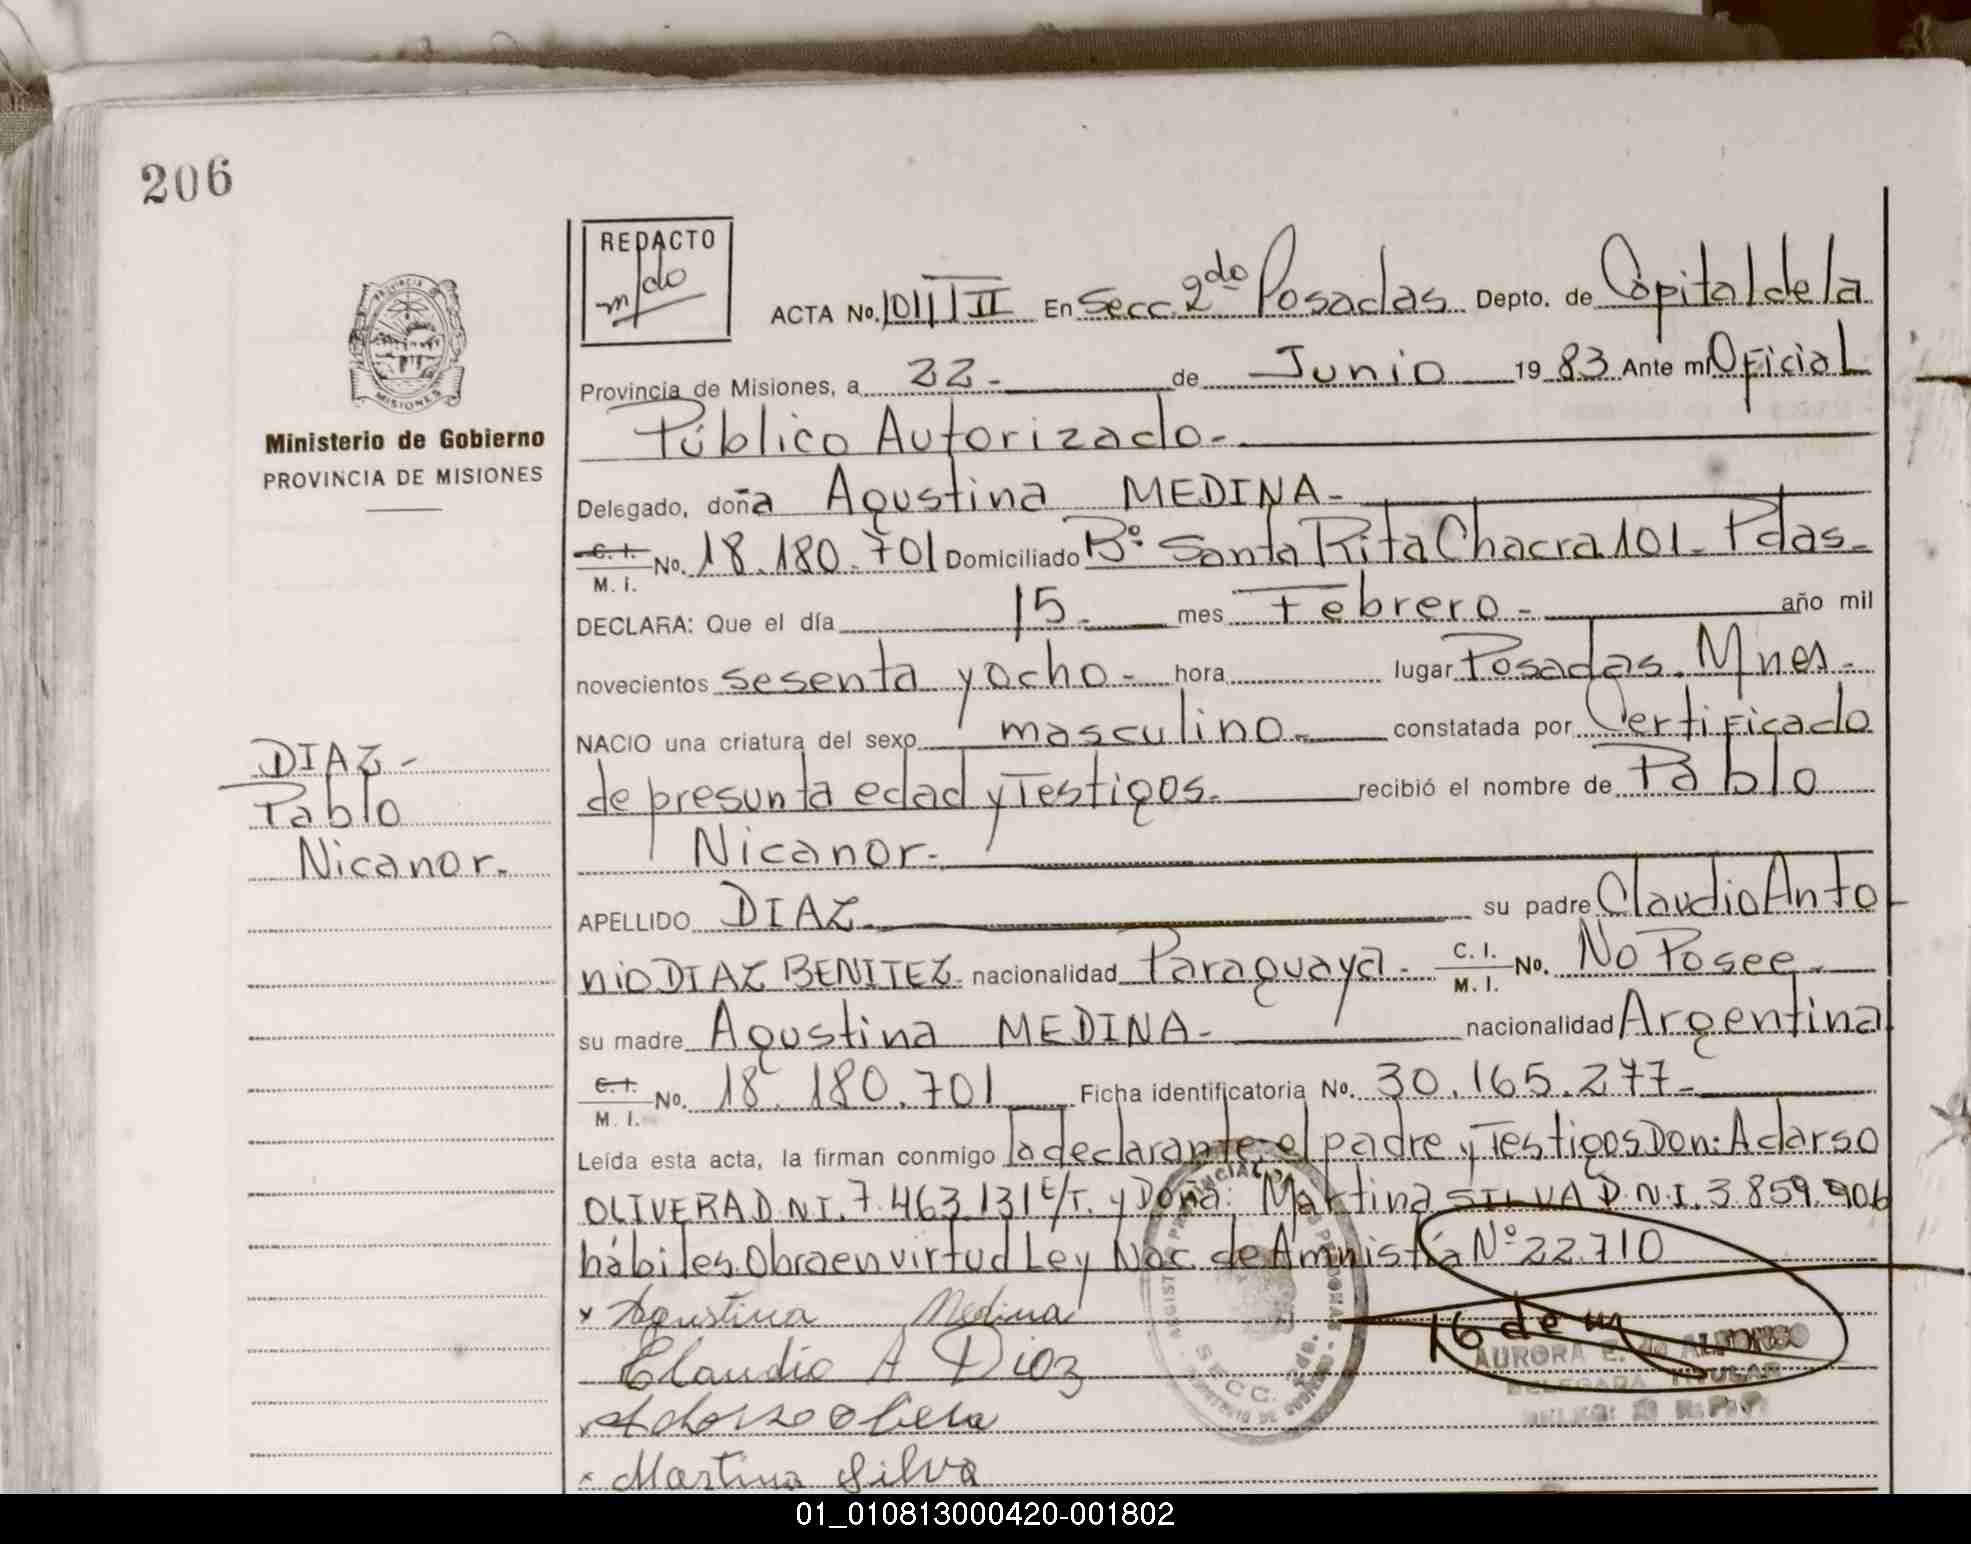 206
REDACTO
m/do
ACTA No. 1011 T II En Secc. 2do Posadas Depto. de Capital de la
Provincia de Misiones, a 22- de Junio 19 83 Ante mi Oficial
Público Autorizado-
Ministerio de Gobierno
PROVINCIA DE MISIONES
Delegado, doña Agustina MEDINA-
C. I. M. I. No. 18.180.701 Domiciliado Bº Santa Rita Chacra 101- Pdas-
DECLARA: Que el día 15- mes Febrero- año mil
novecientos sesenta y ocho- hora lugar Posadas. Mnes-
NACIO una criatura del sexo masculino- constatada por Certificado
de presunta edad y Testigos- recibió el nombre de Pablo
Nicanor-
DIAZ-
Pablo
Nicanor.
APELLIDO DIAZ- su padre Claudio Anto
nio DIAZ BENITEZ- nacionalidad Paraguaya- C. I. M. I. No. No Posee-
su madre Agustina MEDINA- nacionalidad Argentina
C. I. M. I. No. 18.180.701 Ficha identificatoria No. 30.165.277-
Leída esta acta, la firman conmigo la declarante, el padre y Testigos Don: Adarso
OLIVERA D.N.I. 7.463.131 E/T. y Doña: Martina SILVA D.N.I. 3.859.906
hábiles. Obra en virtud Ley Nac. de Amnistía Nº 22.710
x Agustina Medina
Claudio A Diaz
Adarso Olivera
Martina Silva
16 de m
AURORA E. de ALFONSO
DELEGADA TITULAR
SECC. 2da.
01_010813000420-001802